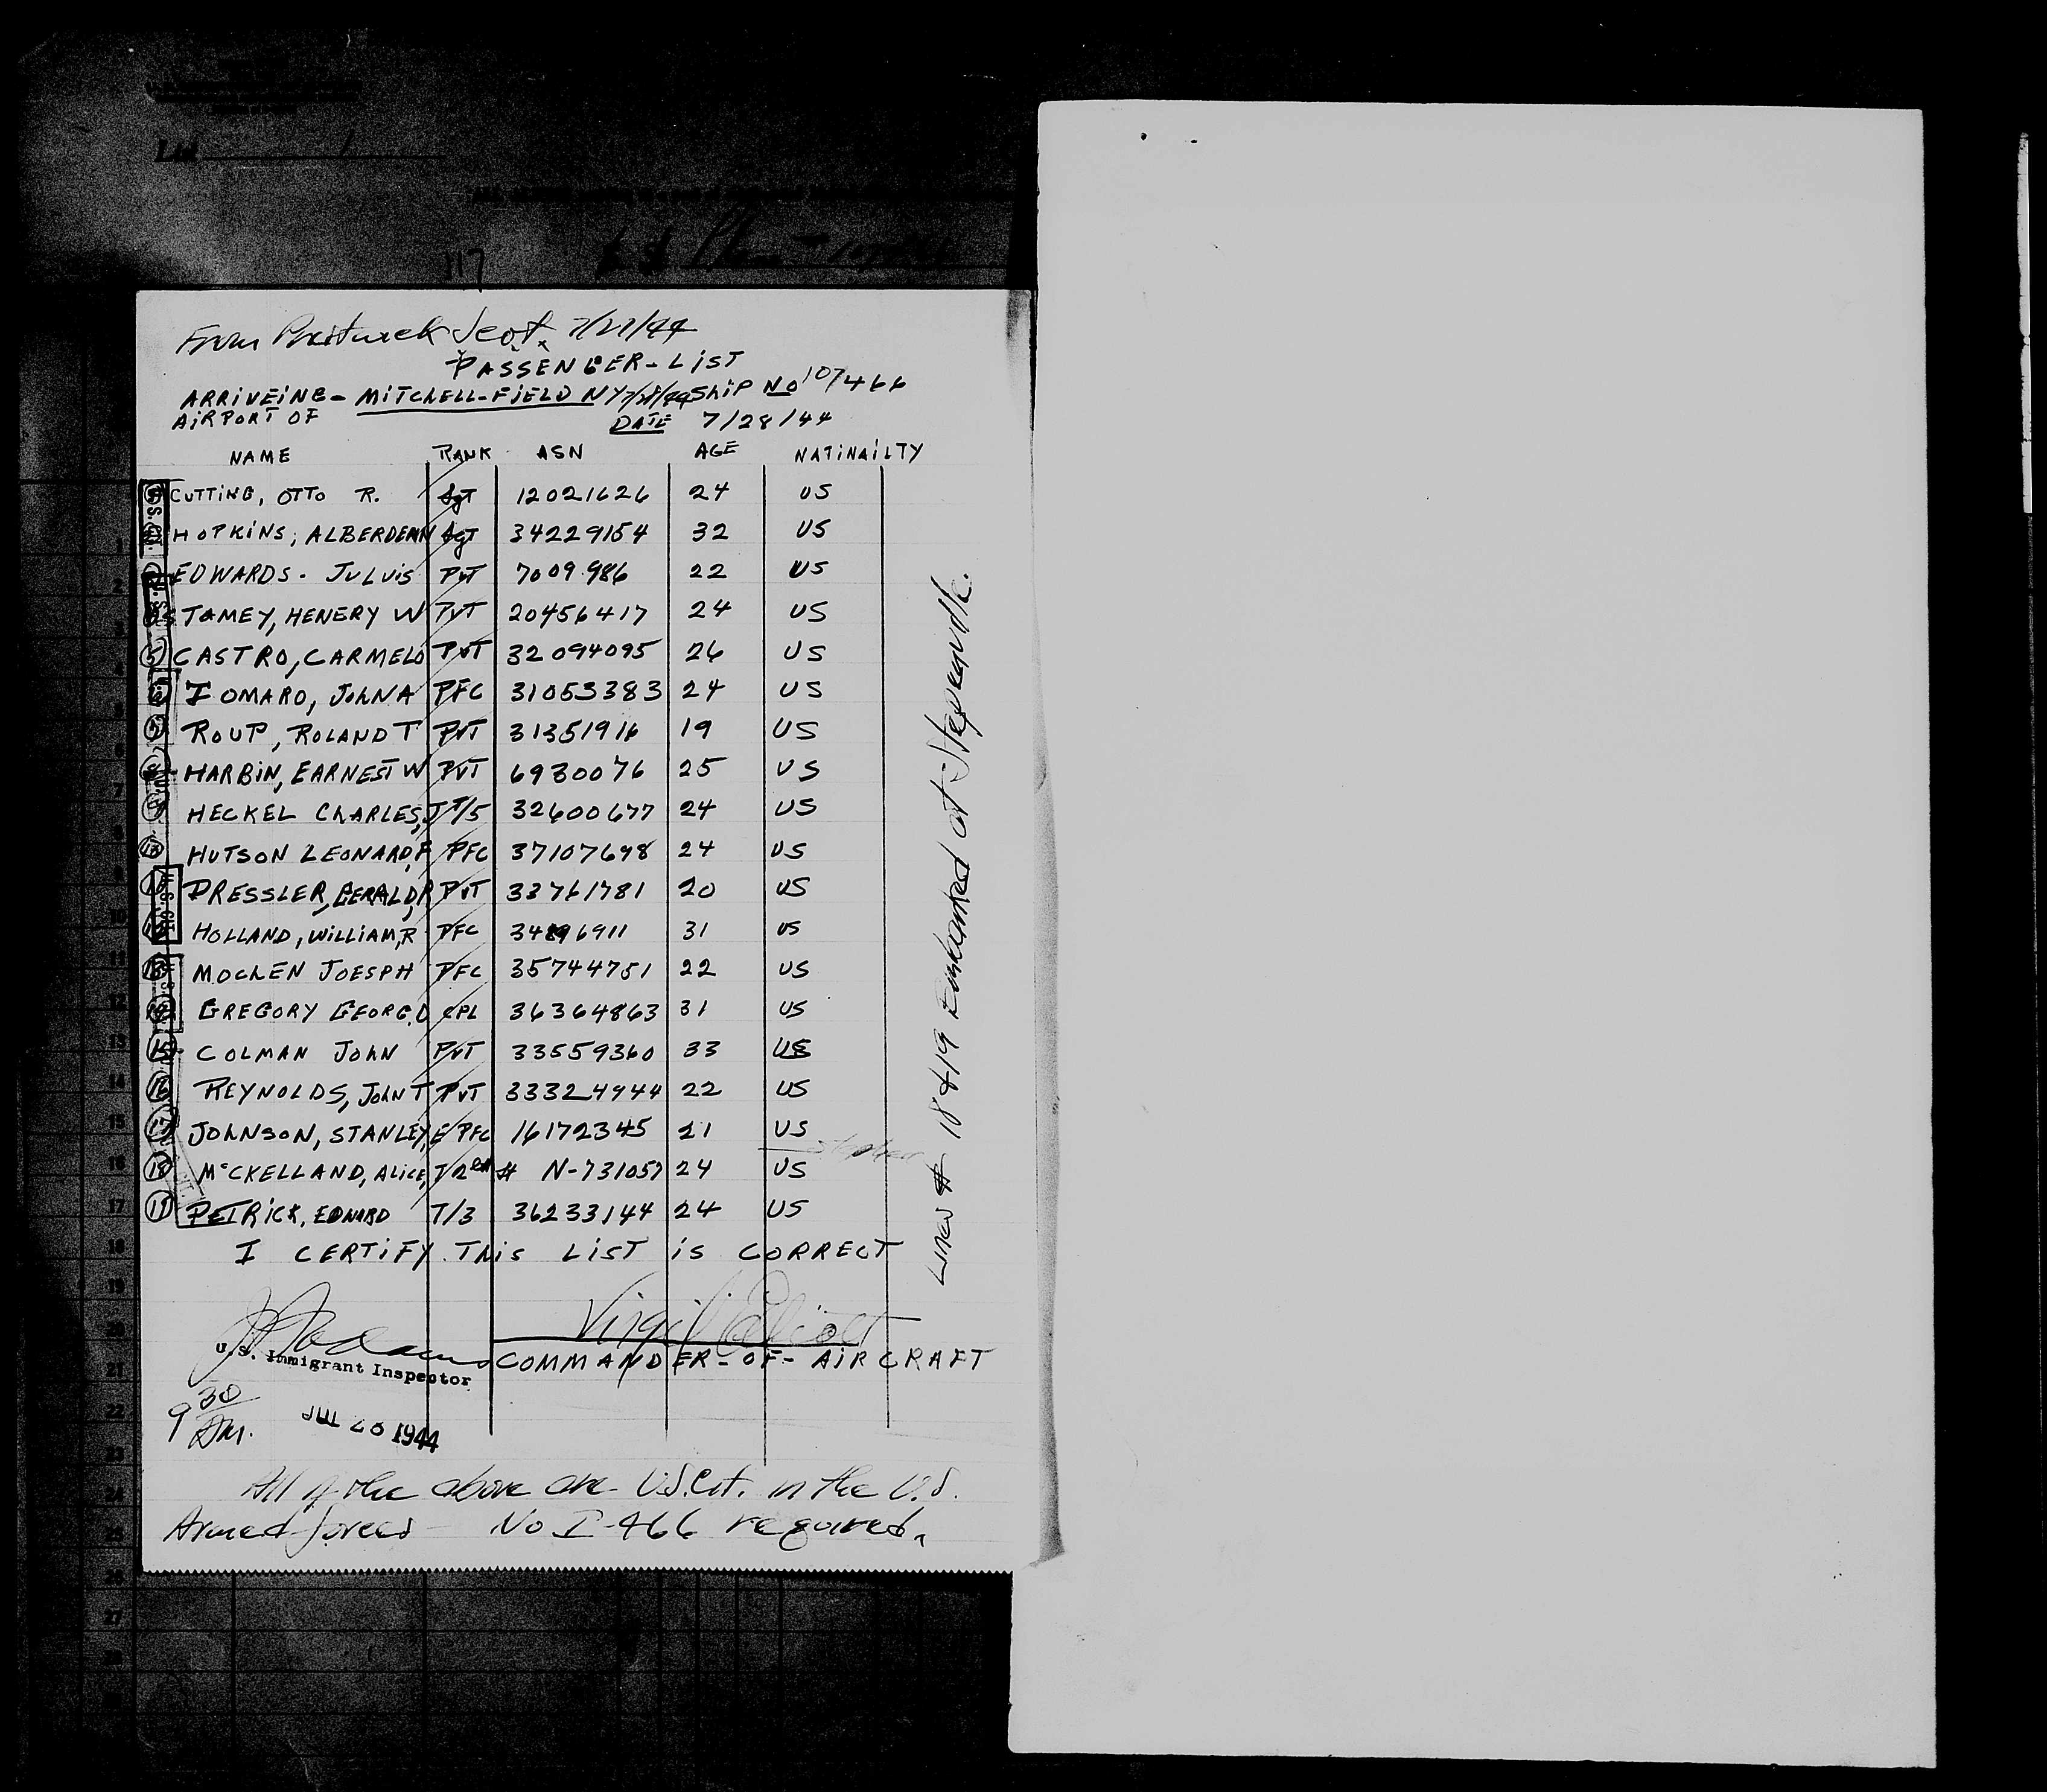 117
From Prestwick Scot. 7/27/44
PASSENGER-LIST
ARRIVEING- MITCHELL-FIELD NY 7/28/44 SHIP NO 107466
AIRPORT OF
DATE 7/28/44
NAME RANK ASN AGE NATINAILTY
1 CUTTING, OTTO R. Sgt 12021626 24 US
2 HOPKINS, ALBERDEAN Sgt 34229154 32 US
3 EDWARDS. JULVIS PVT 7009986 22 US
4 STAMEY, HENERY W PVT 20456417 24 US
5 CASTRO, CARMELO PVT 32094095 26 US
6 IOMARO, JOHN A PFC 31053383 24 US
7 ROUP, ROLAND T PVT 31351916 19 US
8 HARBIN, EARNEST W PVT 6930076 25 US
9 HECKEL CHARLES, J T/5 32600677 24 US
10 HUTSON LEONARD, F PFC 37107698 24 US
11 PRESSLER, GERALD, R PVT 33761781 20 US
12 HOLLAND, WILLIAM, R PFC 34896911 31 US
13 MOCHEN JOESPH PFC 35744751 22 US
14 GREGORY GEORG. D CPL 36364863 31 US
15 COLMAN JOHN PVT 33559360 33 US
16 REYNOLDS, JOHN T PVT 33324944 22 US
17 JOHNSON, STANLEY, E PFC 16172345 21 US
18 McCKELLAND, ALICE, T N-731057 24 US
19 PETRICK, EDWARD T/3 36233144 24 US
I CERTIFY THIS LIST IS CORRECT
Virgil
COMMANDER-OF-AIRCRAFT
U.S. Immigrant Inspector
9 30 AM.
JUL 28 1944
All of the above are U.S.Cit. in the U.S.
Armed forces - No I-466 required.
Lines # 18 & 19 Embarked at Stephenville.